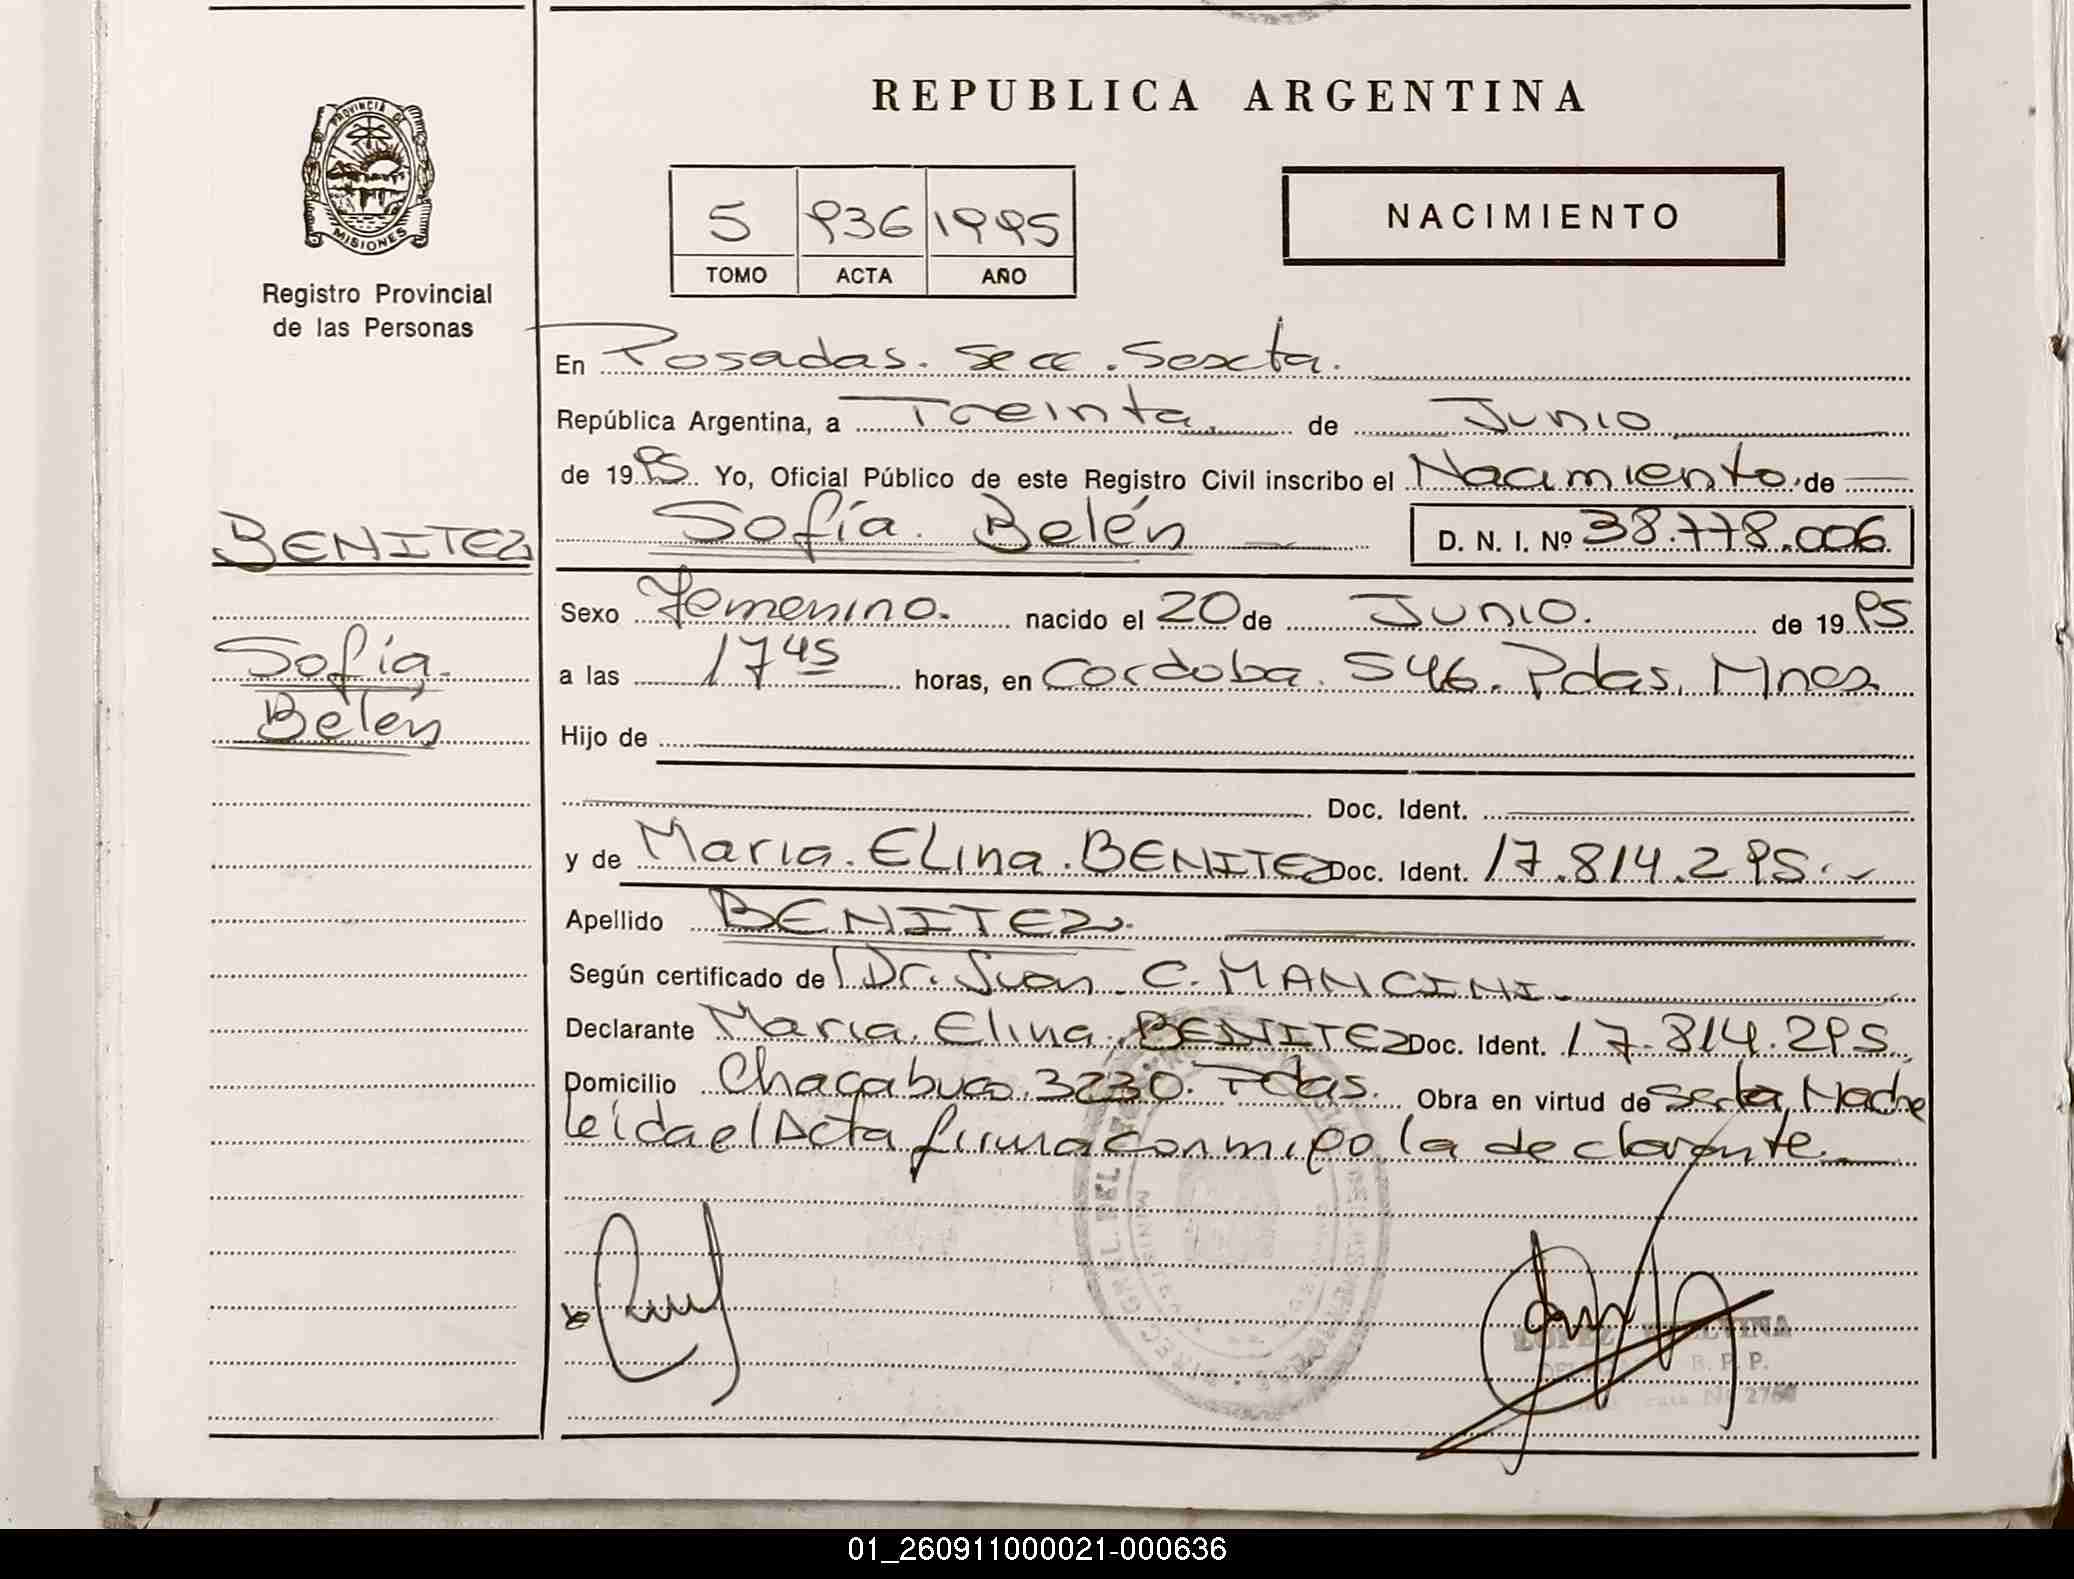 REPUBLICA ARGENTINA
PROVINCIA DE
MISIONES
Registro Provincial
de las Personas
5 936 1995
TOMO ACTA AÑO
NACIMIENTO
En Posadas. Secc. Sexta.
República Argentina, a Treinta de Junio
de 1995 Yo, Oficial Público de este Registro Civil inscribo el Nacimiento de
BENITEZ
Sofía Belén
D. N. I. Nº 38.778.006
Sexo Femenino. nacido el 20 de Junio. de 1995
Sofía
Belén
a las 17 45 horas, en Cordoba. 546. Pdas. Mnes
Hijo de
Doc. Ident.
y de Maria. ELina. BENITEZ Doc. Ident. 17.814.295.-
Apellido BENITEZ.
Según certificado de Dr. Juan C. MANCINI.
Declarante Maria. Elina. BENITEZ Doc. Ident. 17.814.295.
Domicilio Chacabuco. 3230. Pdas. Obra en virtud de Madre
leída el Acta firma con migo la declarante
B. P. P.
2760
01_260911000021-000636